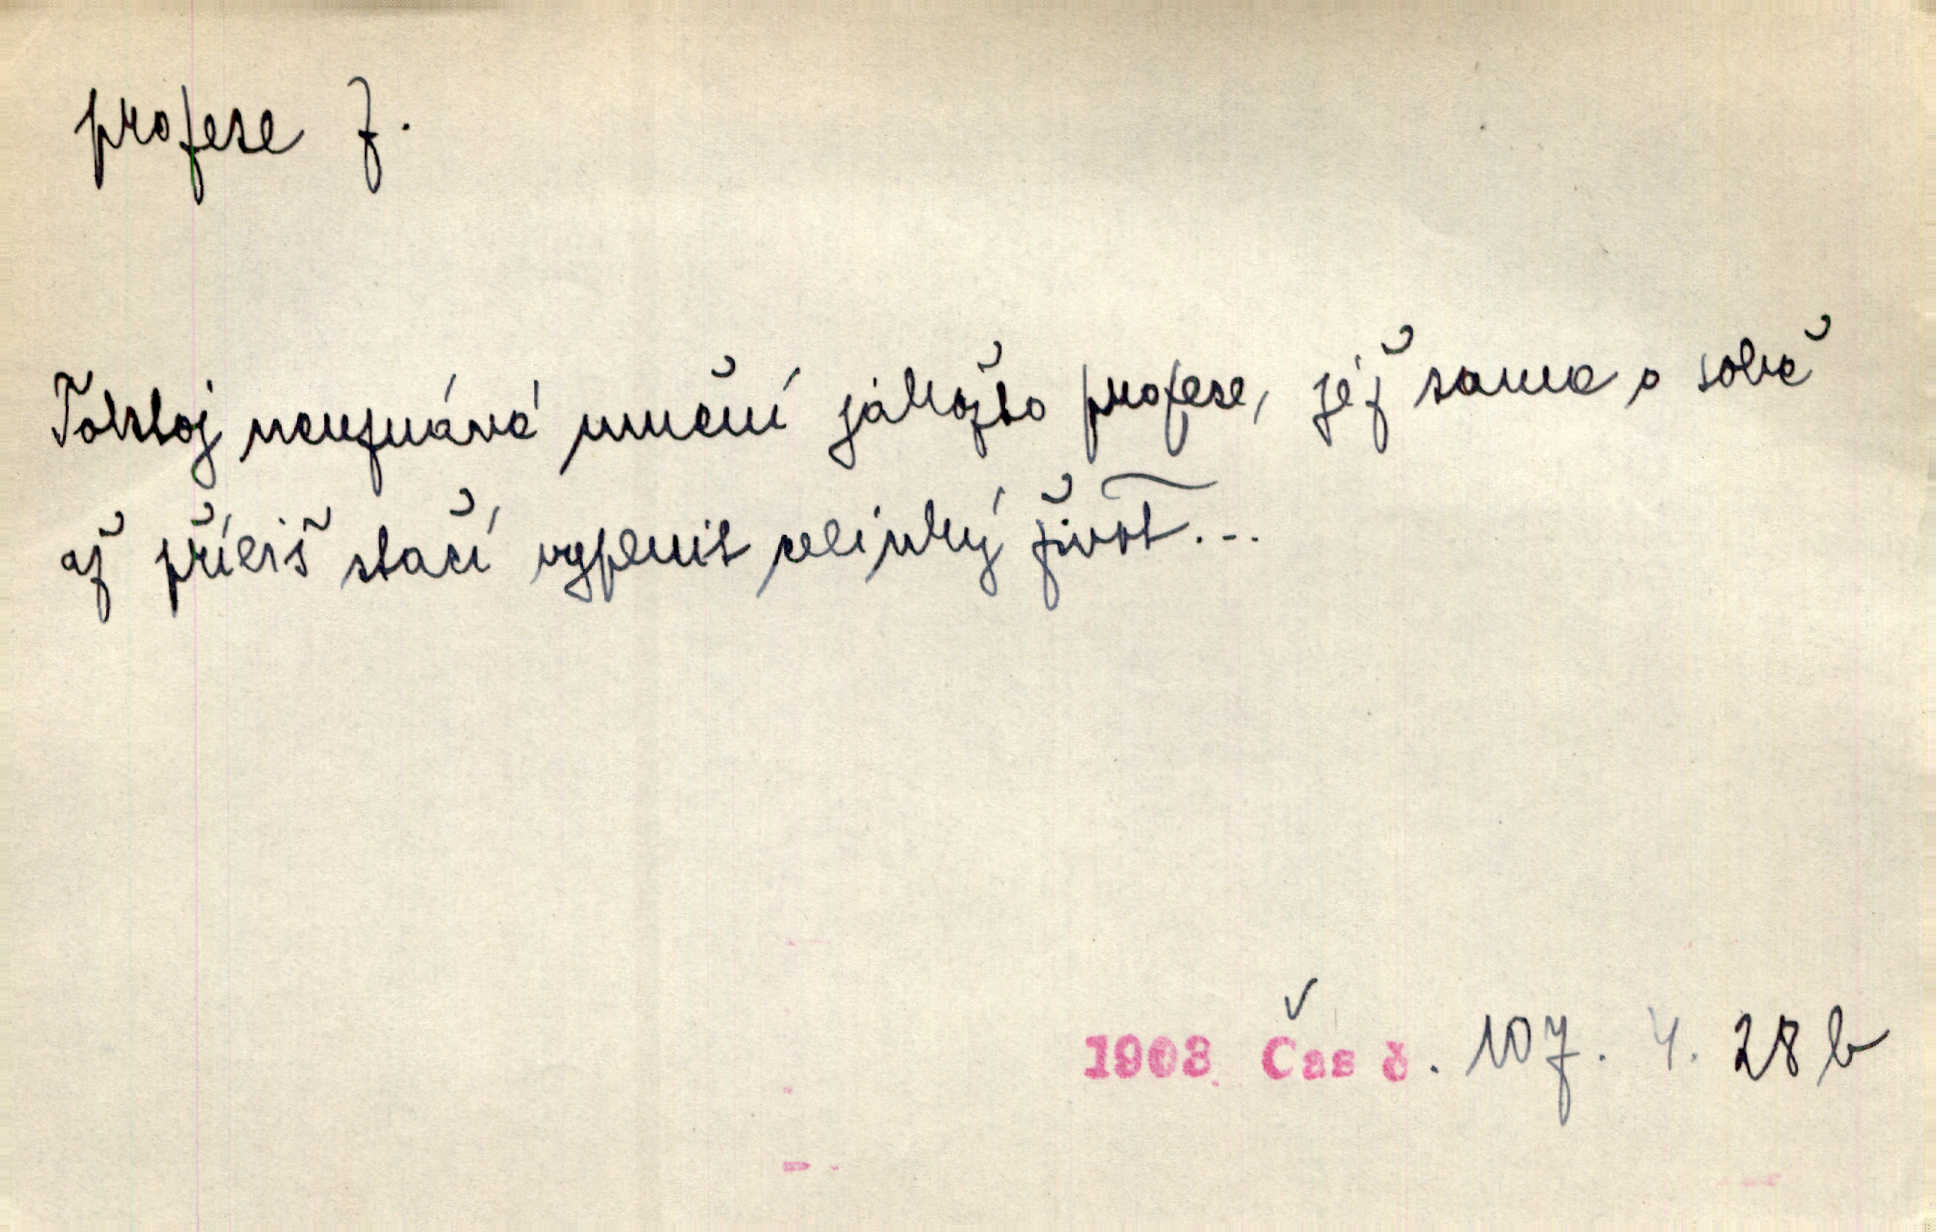 profese ž.
Tolstoj neuznává umění jakožto profese, jéž sama o sobě
až příliš stačí vyplnit celinký život...
1908 Čas č. 107. 4. 28 b